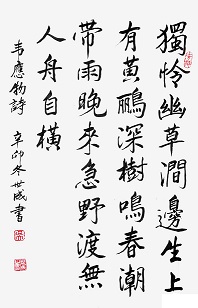 獨怜幽草澗邊生上
有黃鸝深樹鳴春潮
帶雨晚來急野渡無
人舟自橫
韋應物詩
辛卯冬世成書